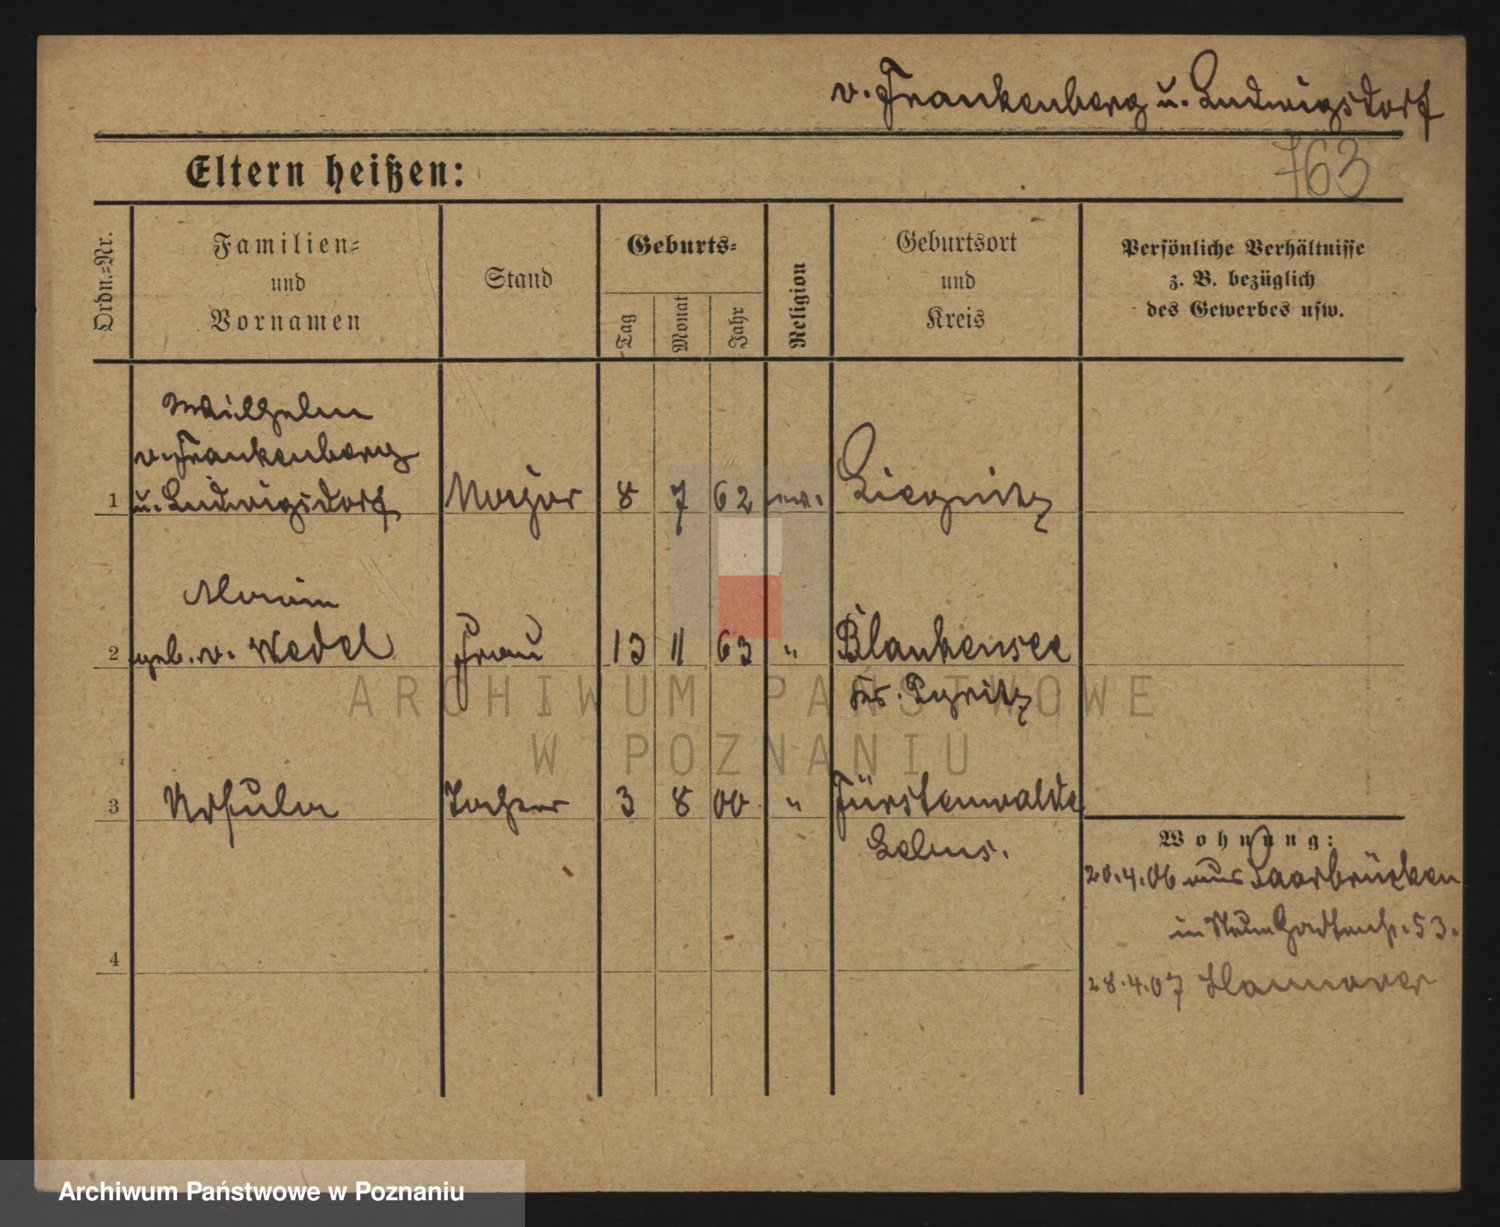 v. Frankenberg u. Ludwigsdorf
763
Eltern heißen:
Ordn.=Nr.
Familien=
und
Vornamen
Stand
Geburts=
Tag
Monat
Jahr
Religion
Geburtsort
und
Kreis
Persönliche Verhältnisse
z. B. bezüglich
des Gewerbes usw.
Wilhelm
v. Frankenberg
1 u. Ludwigsdorf Major 8 7 62 ev. Liegnitz
Maria
2 geb. v. Wedel Frau 13 11 63 " Blankensee
Krs. Pyritz
ARCHIWUM PAŃSTWOWE
W POZNANIU
3 Ursula Tochter 3 8 00 " Fürstenwalde
Lebus.
Wohnung:
20.4.06 aus Saarbrücken
in 53.
4
28.4.07 Hannover
Archiwum Państwowe w Poznaniu